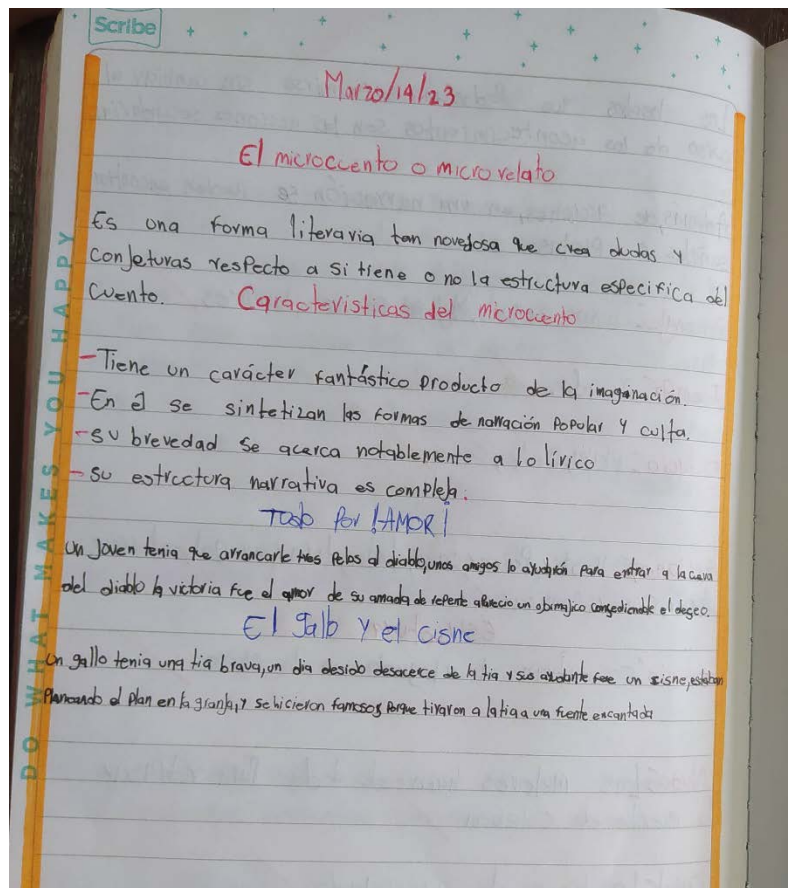 Scribe
Marzo/14/23
El microcuento o microrelato
Es una forma literaria tan novedosa que crea dudas y
conjeturas respecto a si tiene o no la estructura especifica del
cuento. Caracteristicas del microcuento
-Tiene un carácter fantástico producto de la imaginación.
-En él se sintetizan las formas de narración popular y culta.
-su brevedad se acerca notablemente a lo lírico
-su estructura narrativa es compleja.
Todo por !AMOR!
un joven tenia que arrancarle tres pelos al diablo, unos amigos lo para entrar a la cueva
del diablo la victoria fue el amor de su amada de repente aparecio un el deseo.
El gallo y el cisne
un gallo tenia una tia brava, un dia desido desacerce de la tia y su fue un sisne, estaban
el plan en la granja, y se hicieron famosos porque tiraron a la tia a una fuente encantada
DO WHAT MAKES YOU HAPPY